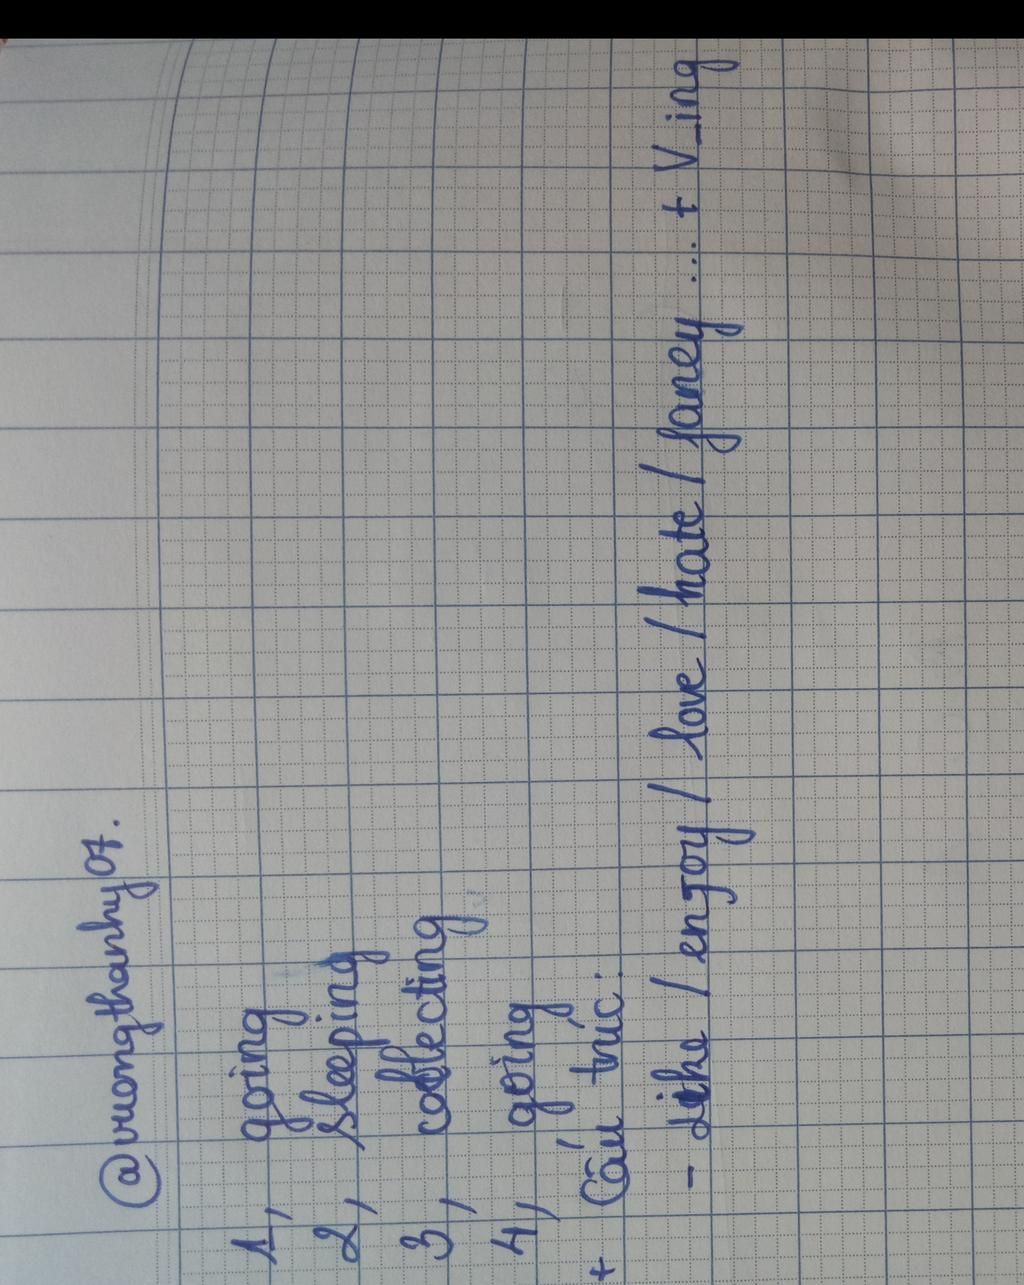 @vuongthanhy07.
1, going
2, sleeping
3, collecting
4, going
+ Cấu trúc:
- Like / enjoy / love / hate / fancy .... + V_ing